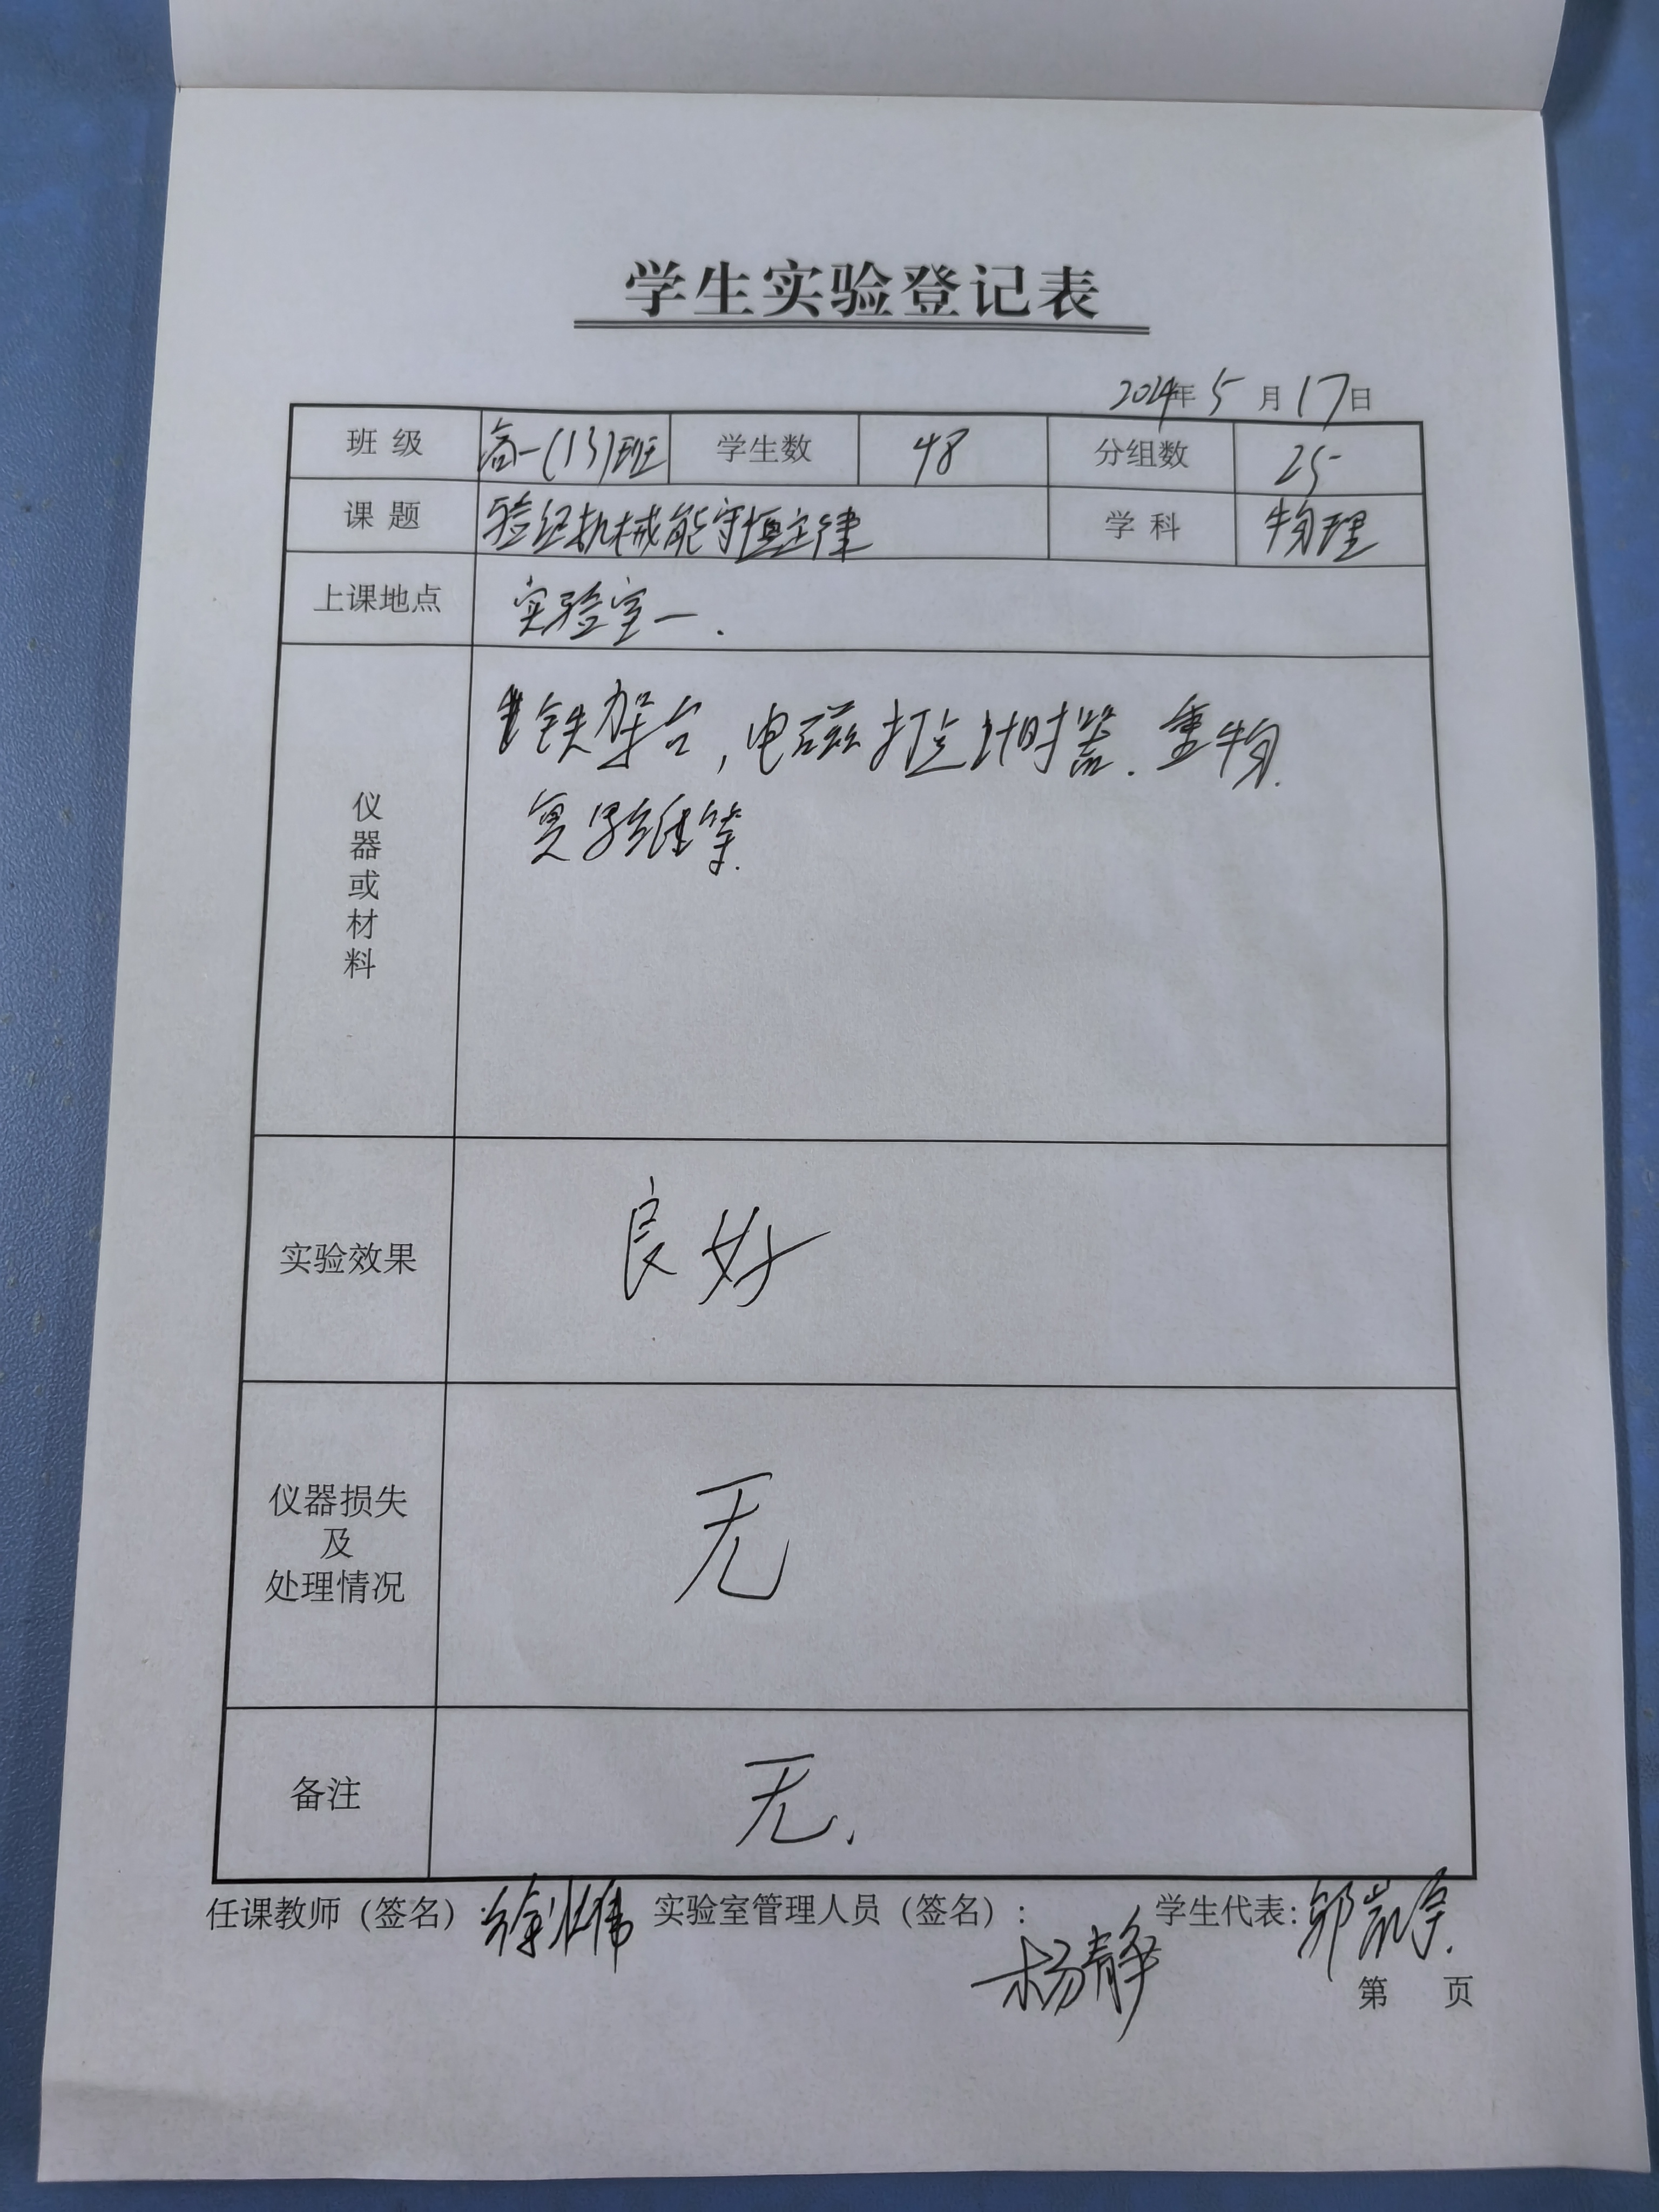 学生实验登记表
2024年5月17日
班级 高一(13)班 学生数 48 分组数 25
课题 验证机械能守恒定律 学科 物理
上课地点 实验室一.
仪器或材料
铁架台,电磁打点计时器.重物.
复写纸等.
实验效果 良好
仪器损失
及
处理情况
无
备注 无.
任课教师(签名) 实验室管理人员(签名): 杨静 学生代表:
第 页